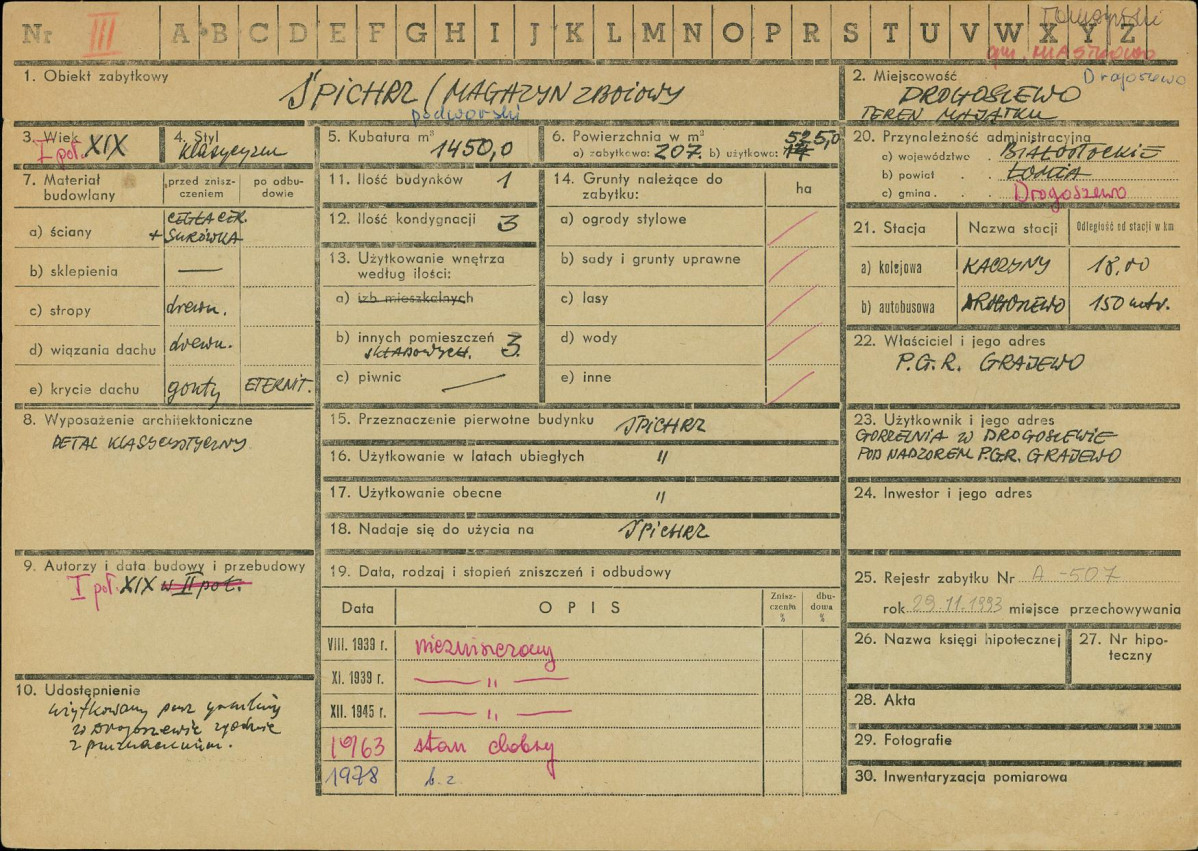 Nr III A B C D E F G H I J K L M N O P R S T U V W X Y Z
gm. MIASTKOWO
1. Obiekt zabytkowy
SPICHRZ / MAGAZYN ZBOŻOWY
podworski
2. Miejscowość Drogoszewo
DROGOSZEWO
TEREN MAJĄTKU
3. Wiek
I poł. XIX
4. Styl
Klasycyzm
5. Kubatura m³
1450,0
6. Powierzchnia w m²
a) zabytkowa: 207. b) użytkowa: 525,0
20. Przynależność administracyjna
a) województwo . BIAŁOSTOCKIE
b) powiat . . ŁOMŻA
c) gmina . Drogoszewo
7. Materiał budowlany
przed zniszczeniem
po odbudowie
a) ściany
CEGŁA CER.
+ SURÓWKA
b) sklepienia —
c) stropy drewn.
d) wiązania dachu drewn.
e) krycie dachu gonty ETERNIT.
11. Ilość budynków 1
12. Ilość kondygnacji 3
13. Użytkowanie wnętrza
według ilości:
a) izb mieszkalnych
b) innych pomieszczeń 3
SKŁADOWYCH.
c) piwnic —
14. Grunty należące do
zabytku: ha
a) ogrody stylowe
b) sady i grunty uprawne
c) lasy
d) wody
e) inne
21. Stacja Nazwa stacji Odległość od stacji w km
a) kolejowa KACZYNY 18,00
b) autobusowa DROGOSZEWO 150 mtr.
22. Właściciel i jego adres
P.G.R. GRAJEWO
8. Wyposażenie architektoniczne
DETAL KLASYCYSTYCZNY
15. Przeznaczenie pierwotne budynku SPICHRZ
16. Użytkowanie w latach ubiegłych "
17. Użytkowanie obecne "
18. Nadaje się do użycia na SPICHRZ
23. Użytkownik i jego adres
GORZELNIA W DROGOSZEWIE
POD NADZOREM P.G.R. GRAJEWO
24. Inwestor i jego adres
9. Autorzy i data budowy i przebudowy
I poł. XIX w II poł.
19. Data, rodzaj i stopień zniszczeń i odbudowy
Data OPIS Zniszczenia % dbudowa %
VIII. 1939 r. niezniszczony
XI. 1939 r. — " —
XII. 1945 r. — " —
1963 stan dobry
1978 b. z.
25. Rejestr zabytku Nr A-507
rok 29.11.1993 miejsce przechowywania
26. Nazwa księgi hipotecznej
27. Nr hipoteczny
28. Akta
29. Fotografie
30. Inwentaryzacja pomiarowa
10. Udostępnienie
użytkowany przez gorzelnię
w Drogoszewie zgodnie
z przeznaczeniem.